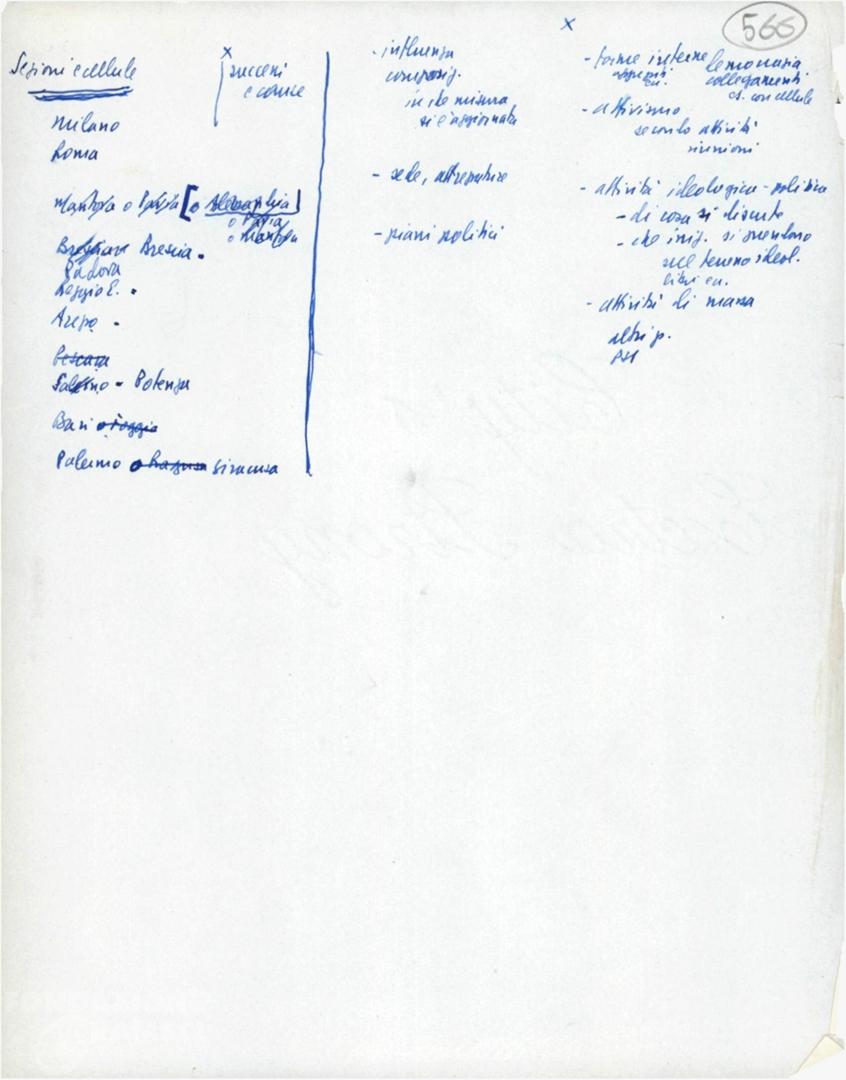 566
Sezioni e cellule
Milano
Roma
Mantova o Pavia [o Alessandria]
o Pavia
o Mantova
Bresciane Brescia
Padova
Reggio E.
Arezzo
Pescara
Salerno - Potenza
Bari o Foggia
Palermo o Ragusa Siracusa
x
successi
e come
- influenza
composiz.
in che misura
si è aggiornata
- sede, attrezzature
- piani politici
x
- forme interne democrazia
collegamenti
es. con cellule
- attivismo
secondo attività
riunioni
- attività ideologico-politica
- di cosa si discute
- che iniz. si prendono
sul terreno ideol.
libri ecc.
- attività di massa
altri p.
PSI